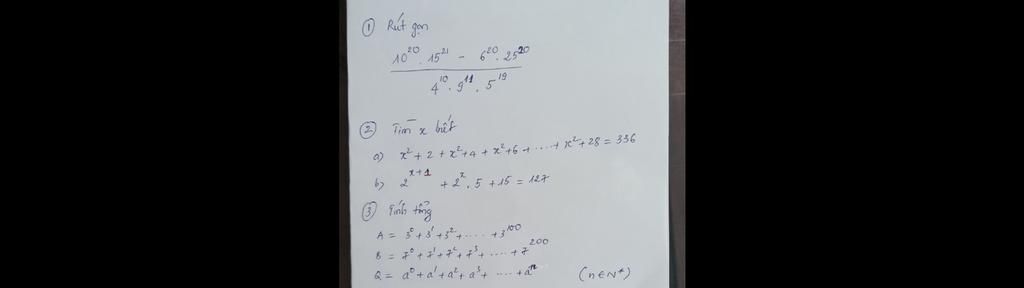 ① Rút gọn
(10^20 . 15^21 - 6^20 . 25^20) / (4^10 . 9^11 . 5^19)
② Tìm x biết
a) x^2 + 2 + x^2 + 4 + x^2 + 6 + ..... + x^2 + 28 = 336
b) 2^(x+1) + 2^x . 5 + 15 = 127
③ Tính tổng
A = 3^0 + 3^1 + 3^2 + ..... + 3^100
B = 7^0 + 7^1 + 7^2 + 7^3 + ..... + 7^200
Q = a^0 + a^1 + a^2 + a^3 + ..... + a^n (n ∈ N*)